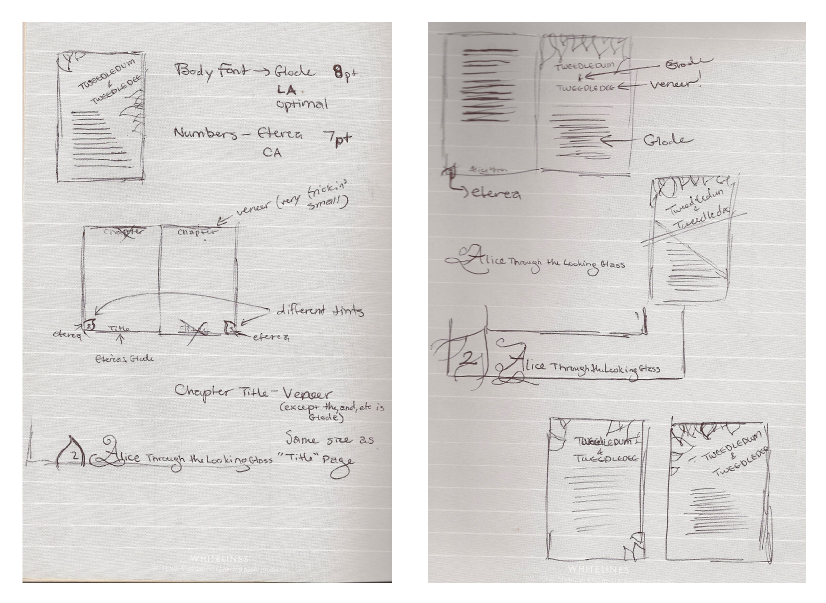 TWEEDLEDUM
&
TWEEDLEDEE
Body Font → Glode 8pt
LA.
optimal
Numbers – Eterea 7pt
CA
veneer (very frickin'
small)
Chapter Chapter
different tints
2
eterea Title eterea
Eterea & Glode
Chapter Title – Veneer
(except the, and, etc is
Glode)
Same size as
"Title" page
2 Alice Through the Looking Glass
WHITELINES
TWEEDLEDUM
&
TWEEDLEDEE
Glode
veneer!
Glode
eterea
Tweedledum
&
Tweedledee
Alice Through the Looking Glass
2 Alice Through the Looking Glass
TWEEDLEDUM
&
TWEEDLEDEE
TWEEDLEDUM
&
TWEEDLEDEE
WHITELINES